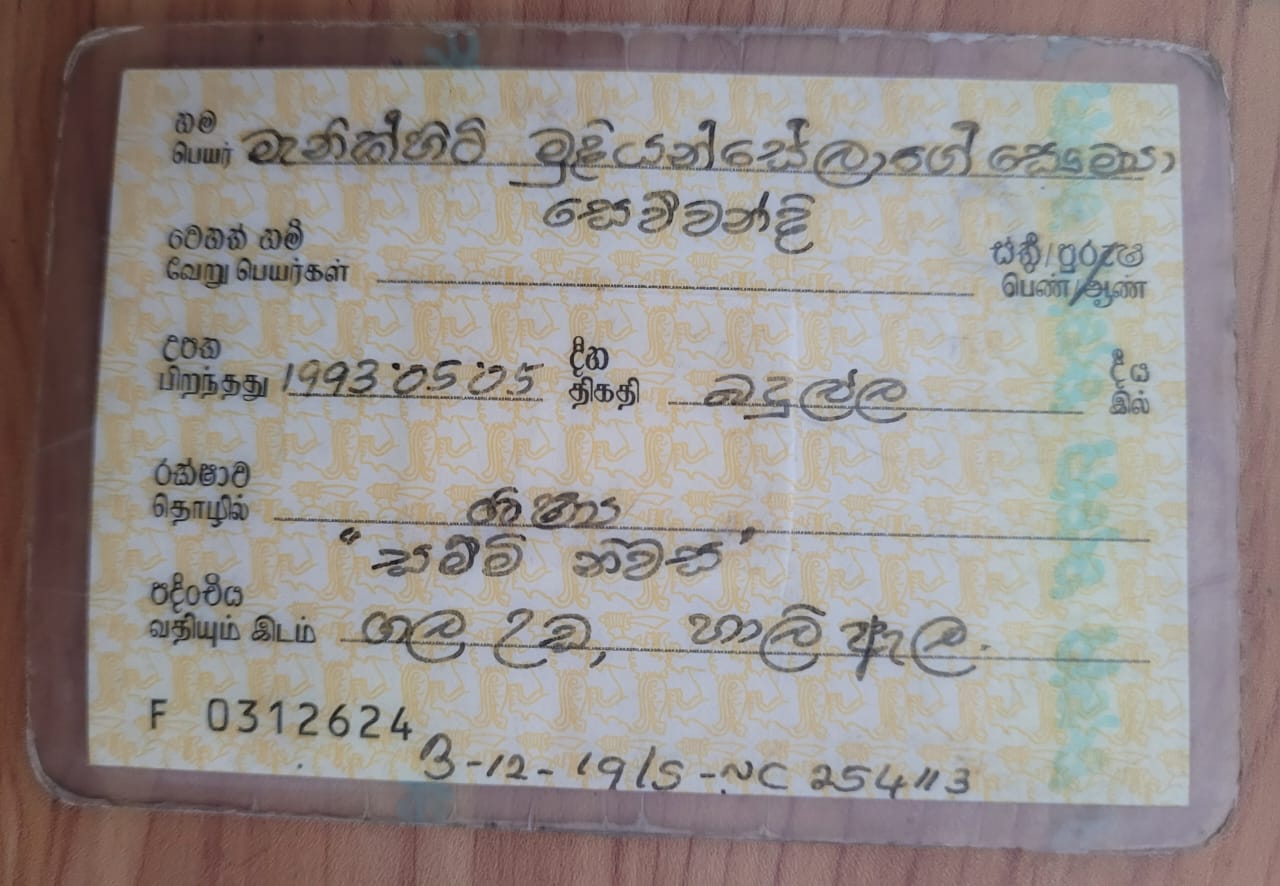 නම
பெயர் මැනික්හිටි මුදියන්සේලාගේ සෞම්‍යා
සෙව්වන්දි
වෙනත් නම්
வேறு பெயர்கள்
ස්ත්‍රී/පුරුෂ
பெண்/ஆண்
උපත
பிறந்தது 1993.05.05 දින
திகதி බදුල්ල දීය
இல்
රක්ෂාව
தொழில்
"සම්මි නිවස"
පදිංචිය
வதியும் இடம் ගල උඩ, හාලි ඇල.
F 0312624
3-12-19/5-NC 254113